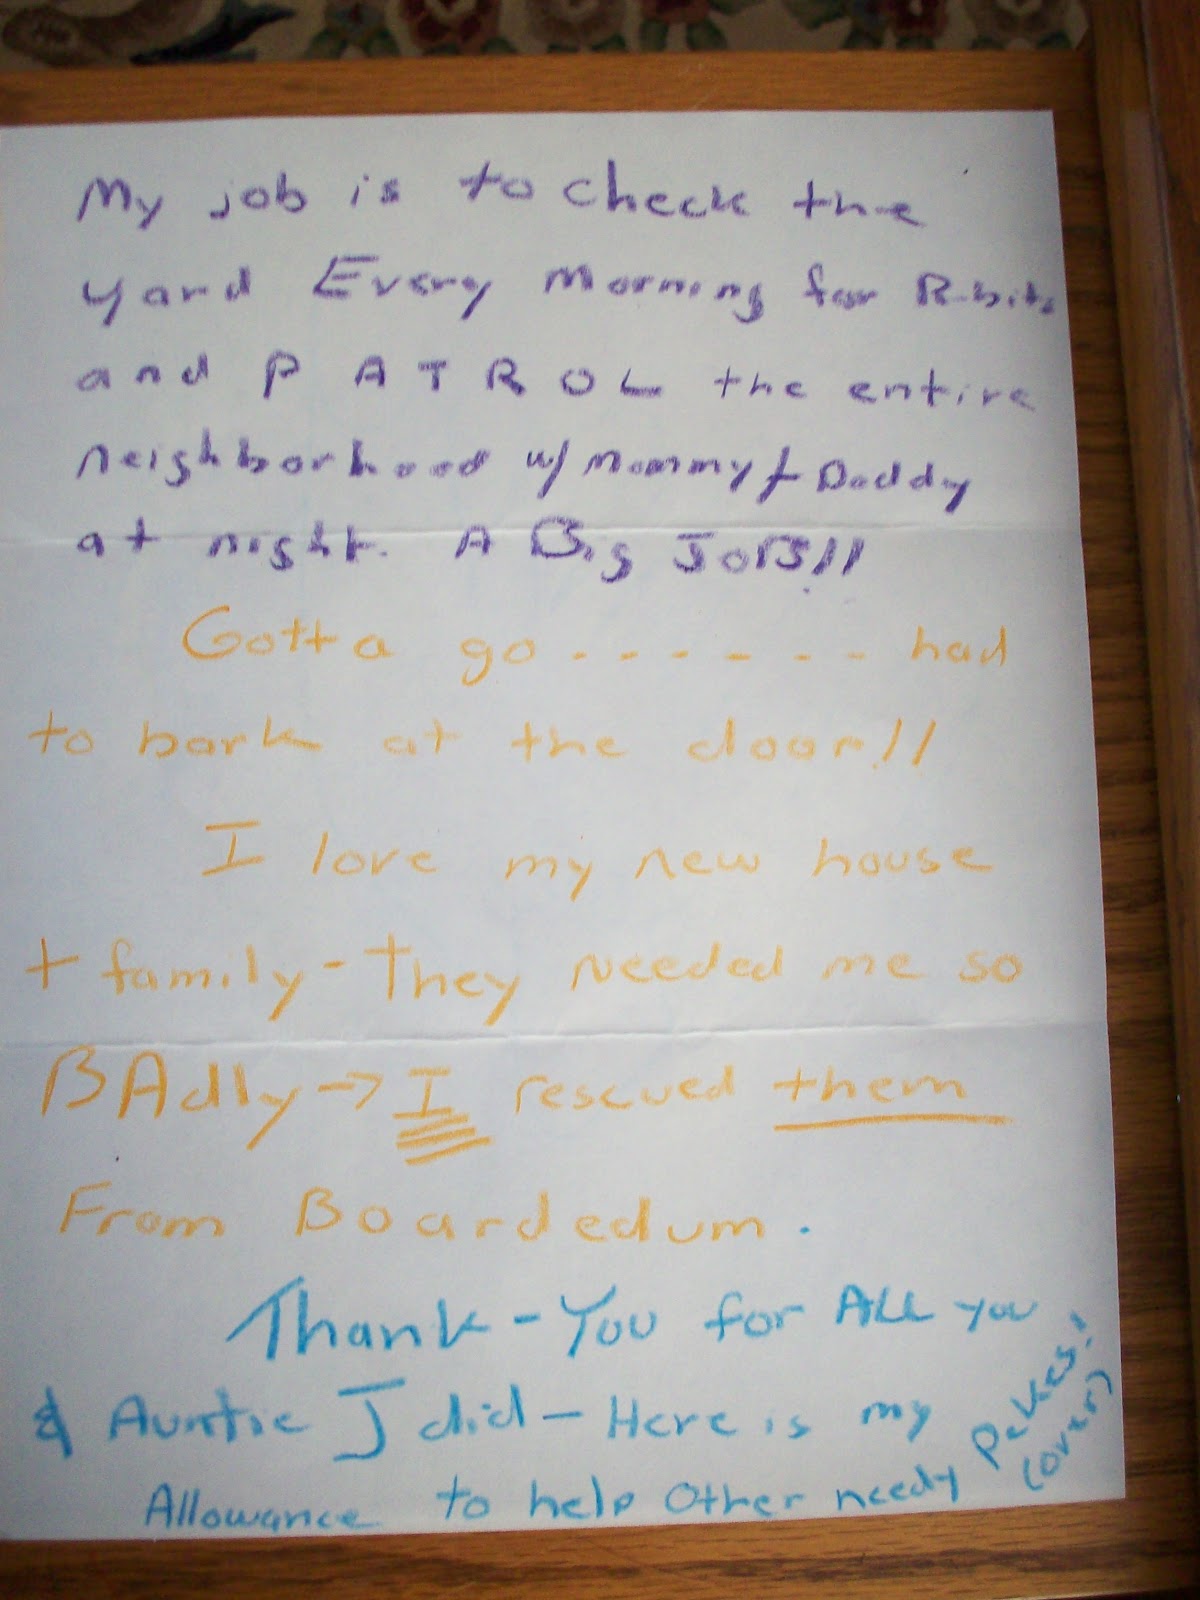 My job is to check the
yard Every Morning for R-bits
and PATROL the entire
neighborhood w/ Mommy & Daddy
at night. A Big JoB!!
Gotta go - - - - - - - had
to bark at the door!!
I love my new house
+ family - They Needed me so
BAdly → I rescued them
From Boardedum.
Thank-You for ALL you
& Auntie J did - Here is my
Allowance to help Other needy Pekes!
(over)